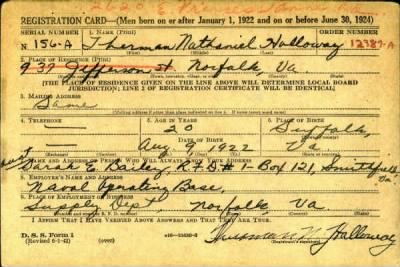 REGISTRATION CARD—(Men born on or after January 1, 1922 and on or before June 30, 1924)
SERIAL NUMBER 1. NAME (Print) ORDER NUMBER
N 156-A Therman Nathaniel Holloway 12387-A
2. PLACE OF RESIDENCE (Print)
937 Jefferson St Norfolk, Va
[THE PLACE OF RESIDENCE GIVEN ON THE LINE ABOVE WILL DETERMINE LOCAL BOARD
JURISDICTION; LINE 2 OF REGISTRATION CERTIFICATE WILL BE IDENTICAL]
3. MAILING ADDRESS
Same
4. TELEPHONE 5. AGE IN YEARS 6. PLACE OF BIRTH
— 20 Suffolk,
DATE OF BIRTH
— Aug 9 1922 Va
7. NAME AND ADDRESS OF PERSON WHO WILL ALWAYS KNOW YOUR ADDRESS
E. Bailey, RFD #1-Box 121, Smithfield, Va
8. EMPLOYER'S NAME AND ADDRESS
Naval Operating Base,
9. PLACE OF EMPLOYMENT OR BUSINESS
Supply Dept Norfolk Va.
I AFFIRM THAT I HAVE VERIFIED ABOVE ANSWERS AND THAT THEY ARE TRUE.
D. S. S. Form 1
(Revised 6-1-42) Thurman N Holloway